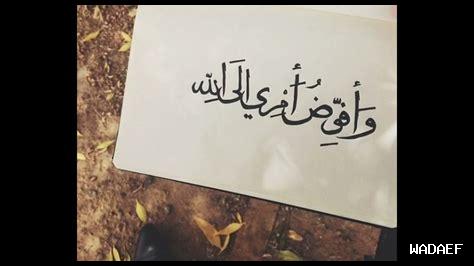 وَأُفَوِّضُ أَمْرِي إِلَى اللَّهِ
WADAEF